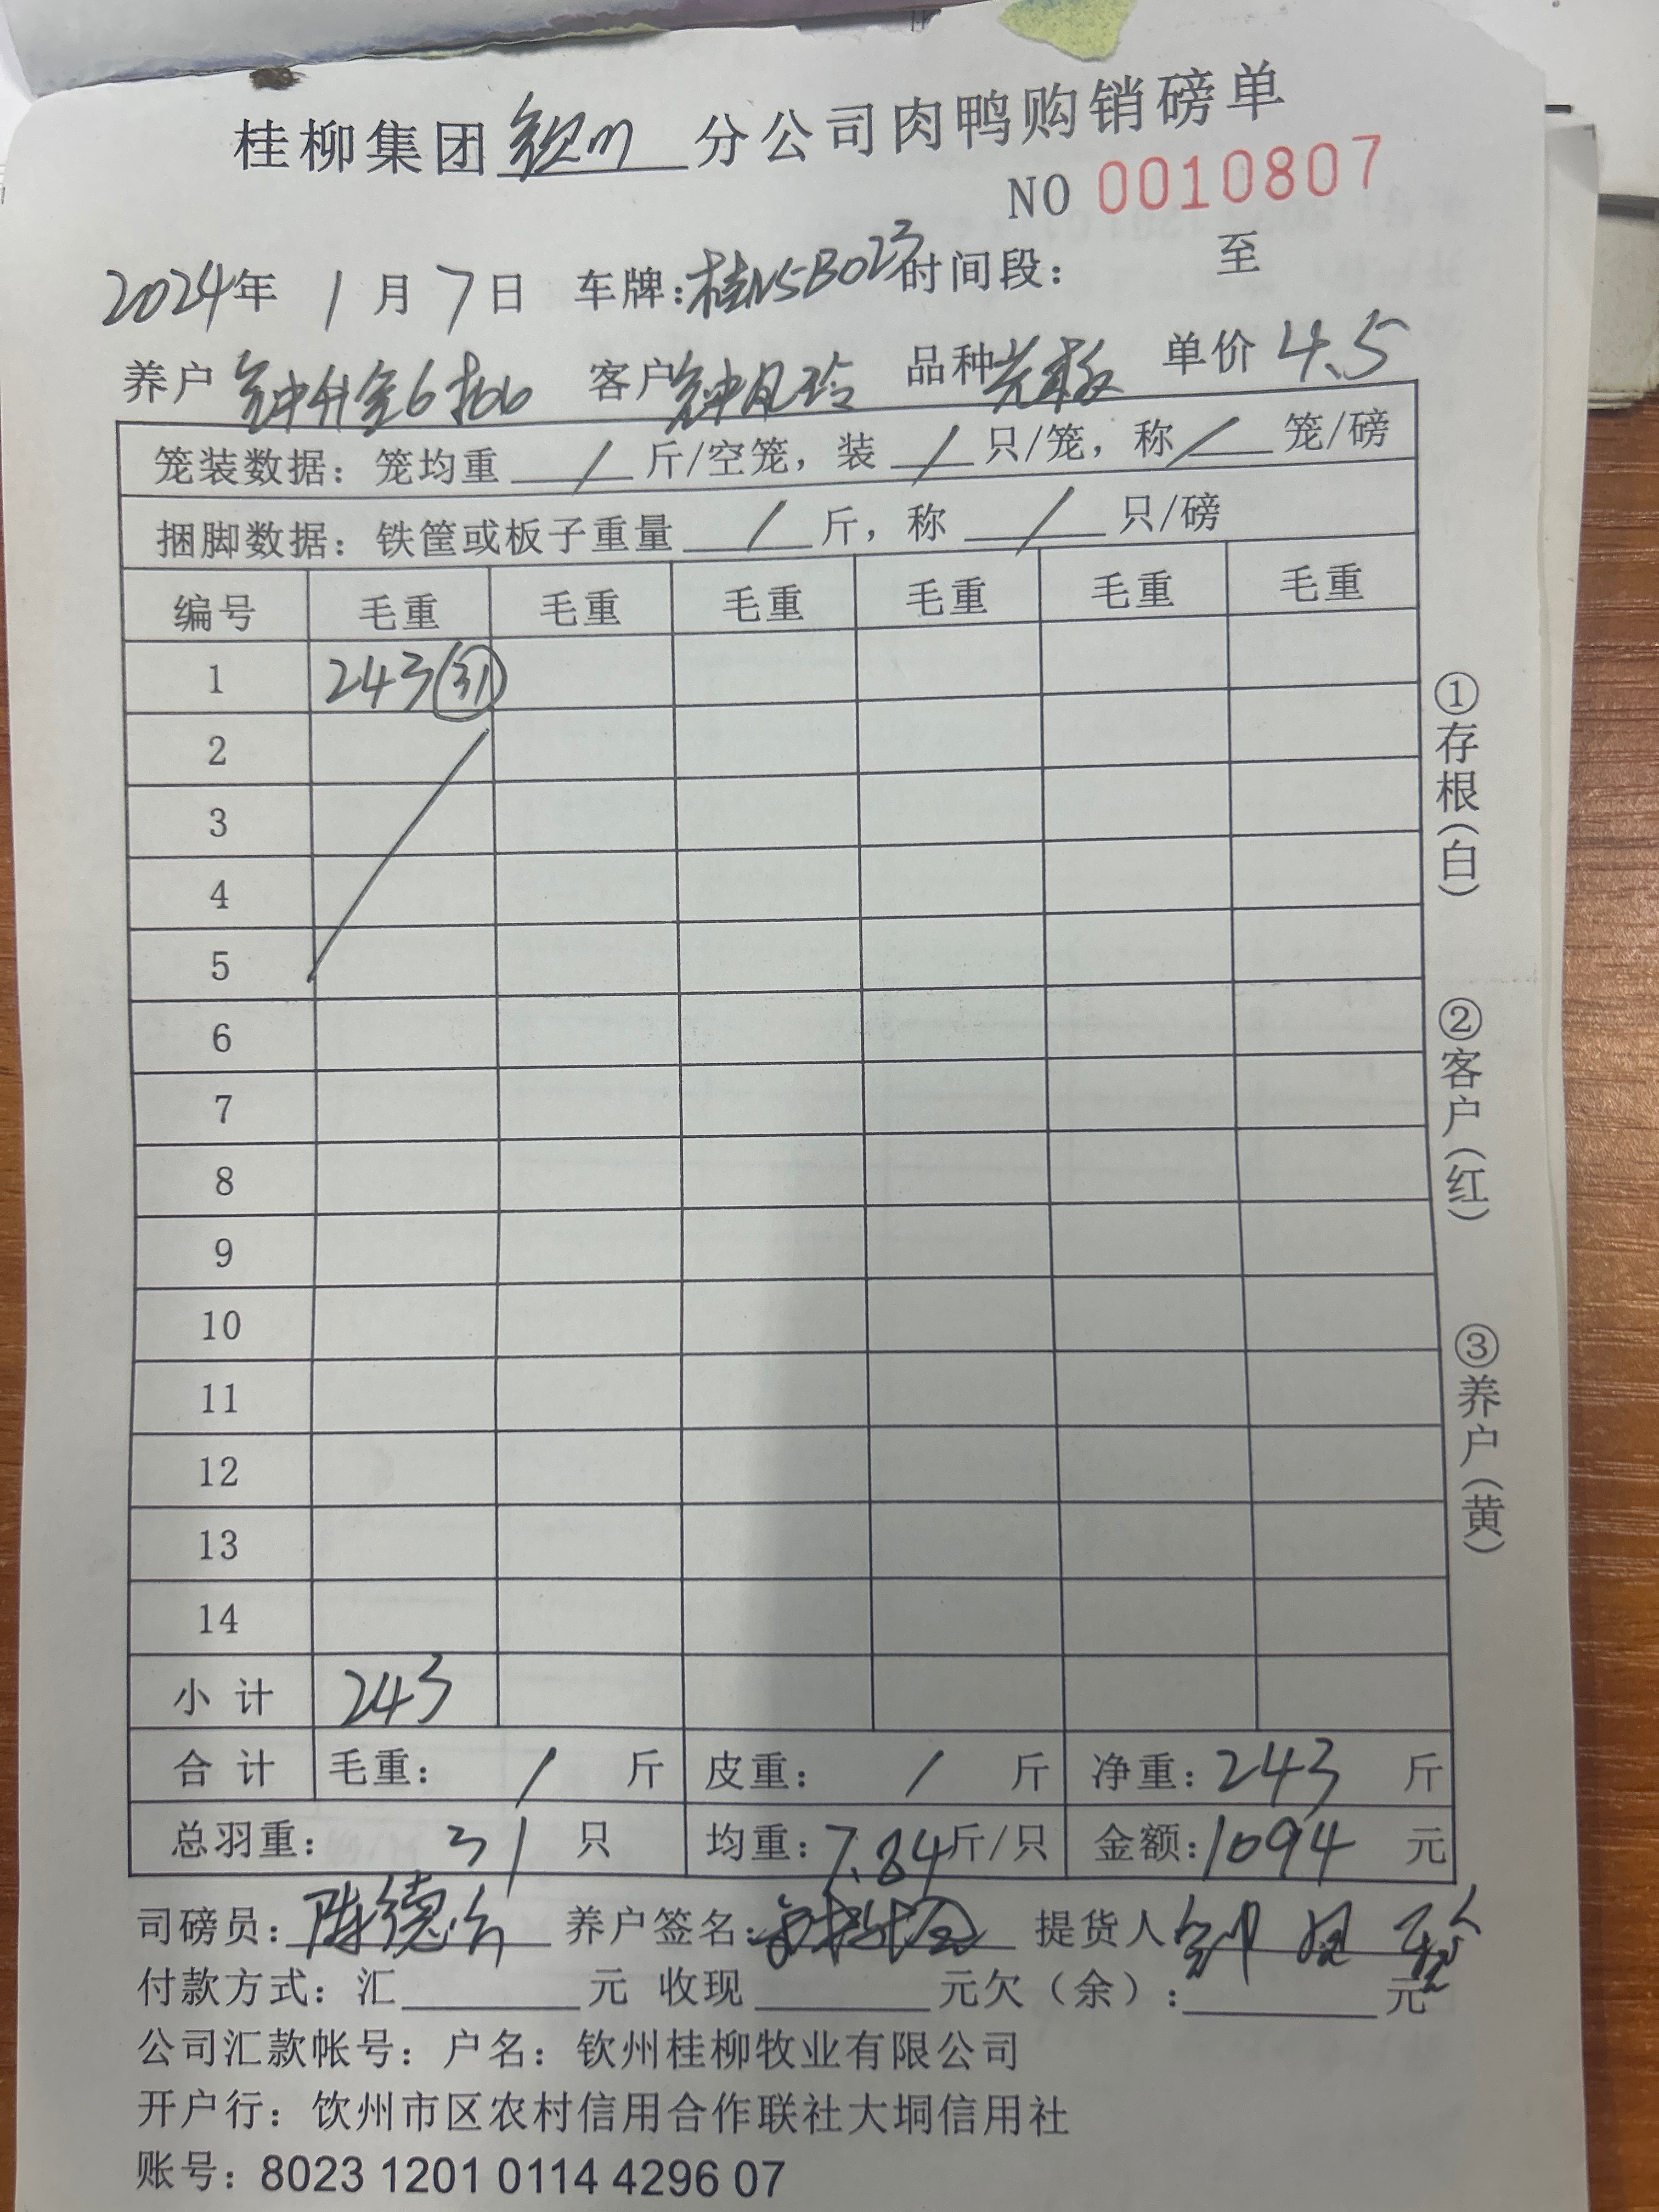 桂柳集团钦州分公司肉鸭购销磅单
NO 0010807
2024年 1月 7日 车牌:桂N5B023 时间段: 至
养户 钟升金6批 客户 钟凤玲 品种 单价 4.5
笼装数据: 笼均重 / 斤/空笼, 装 / 只/笼, 称 / 笼/磅
捆脚数据: 铁筐或板子重量 / 斤, 称 / 只/磅
编号 毛重 毛重 毛重 毛重 毛重 毛重
1 243 ㉛
2
3
4
5
6
7
8
9
10
11
12
13
14
小 计 243
合 计 毛重: / 斤 皮重: / 斤 净重: 243 斤
总羽重: 31 只 均重: 7.84斤/只 金额: 1094 元
司磅员: 养户签名: 提货人
付款方式: 汇 元 收现 元欠(余): 元
公司汇款帐号: 户名: 钦州桂柳牧业有限公司
开户行: 饮州市区农村信用合作联社大垌信用社
账号: 8023 1201 0114 4296 07
①存根(白)
②客户(红)
③养户(黄)